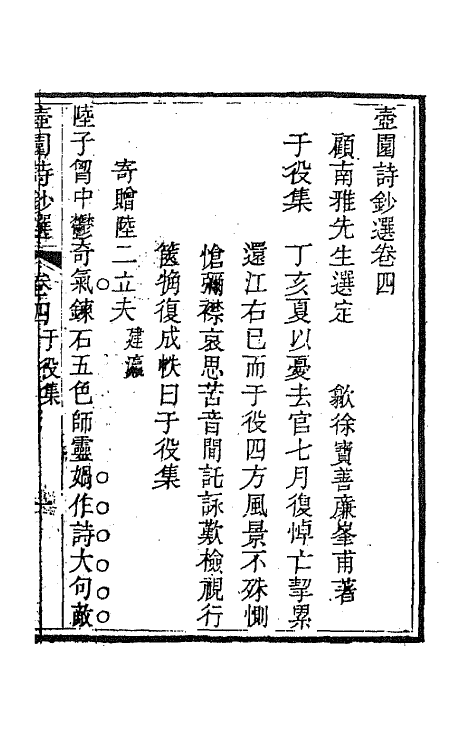 壺園詩鈔選卷四
顧南雅先生選定　歙徐寶善廉峯甫著
于役集　丁亥夏以憂去官七月復悼亡挈累
還江右已而于役四方風景不殊惻
愴彌襟哀思苦音間託詠歎檢視行
篋觕復成帙曰于役集
寄贈陸二立夫建瀛
陸子胷中鬱奇氣鍊石五色師靈媧作詩大句敵
壺園詩鈔選　卷四　于役集　一